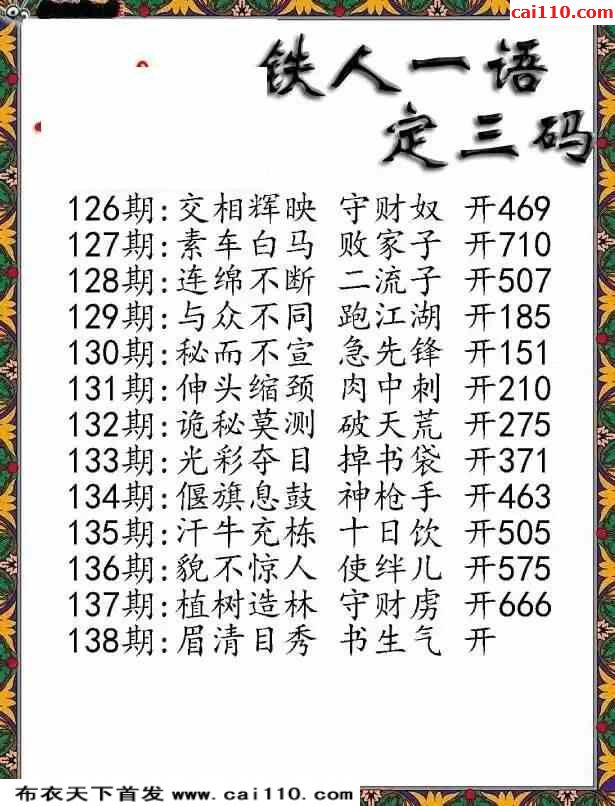 cai110.com
铁人一语
定三码
126期:交相辉映 守财奴 开469
127期:素车白马 败家子 开710
128期:连绵不断 二流子 开507
129期:与众不同 跑江湖 开185
130期:秘而不宣 急先锋 开151
131期:伸头缩颈 肉中刺 开210
132期:诡秘莫测 破天荒 开275
133期:光彩夺目 掉书袋 开371
134期:偃旗息鼓 神枪手 开463
135期:汗牛充栋 十日饮 开505
136期:貌不惊人 使绊儿 开575
137期:植树造林 守财虏 开666
138期:眉清目秀 书生气 开
布衣天下首发 www.cai110.com